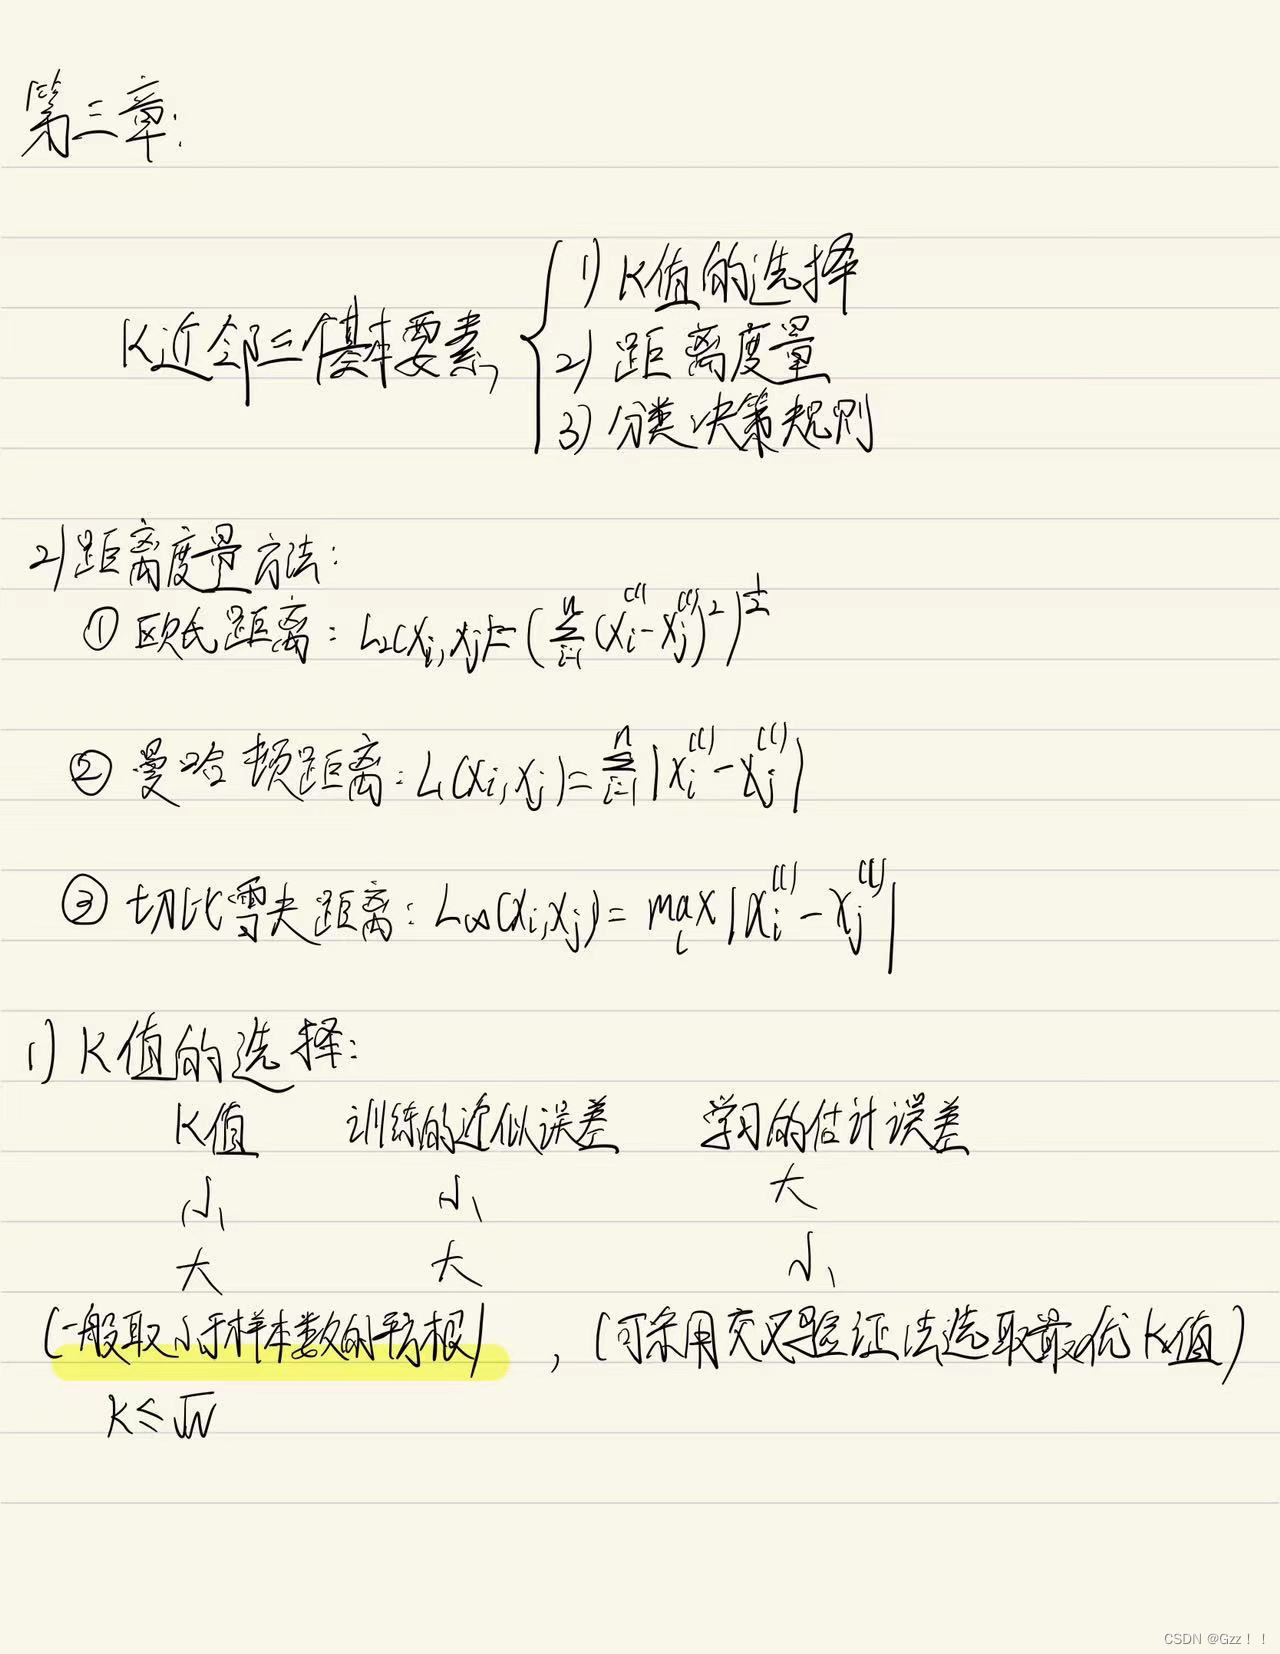 第三章:
K近邻三个基本要素,
1) K值的选择
2) 距离度量
3) 分类决策规则
2) 距离度量方法:
① 欧氏距离: L₂(xᵢ, xⱼ)=(∑ᵢ₌₁ⁿ (xᵢ⁽ˡ⁾-xⱼ⁽ˡ⁾)²)^½
② 曼哈顿距离: L₁(xᵢ, xⱼ)=∑ᵢ₌₁ⁿ |xᵢ⁽ˡ⁾-xⱼ⁽ˡ⁾|
③ 切比雪夫距离: L∞(xᵢ, xⱼ)= max_l |xᵢ⁽ˡ⁾-xⱼ⁽ˡ⁾|
1) K值的选择:
K值 训练的近似误差 学习的估计误差
小 小 大
大 大 小
(一般取小于样本数的平方根) , (可采用交叉验证法选取最优K值)
K≤√N
CSDN @Gzz！！